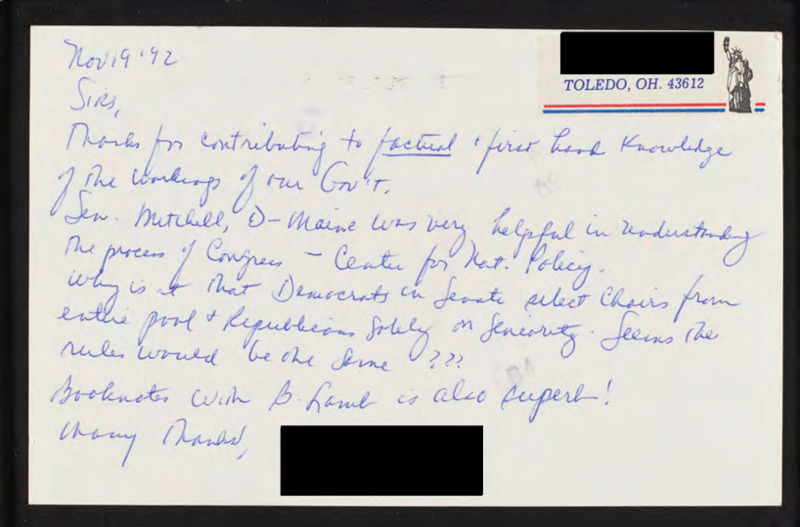 Nov 19 '92
TOLEDO, OH. 43612
Sirs,
Thanks for contributing to factual + first hand knowledge
of the workings of our Gov't.
Sen. Mitchell, D-Maine was very helpful in understanding
the process of Congress – Center for Nat. Policy.
Why is it that Democrats in Senate select Chairs from
entire pool + Republicans solely on Seniority. Seems the
rules would be the same ???
Booknotes with B. Lamb is also superb!
Many Thanks,